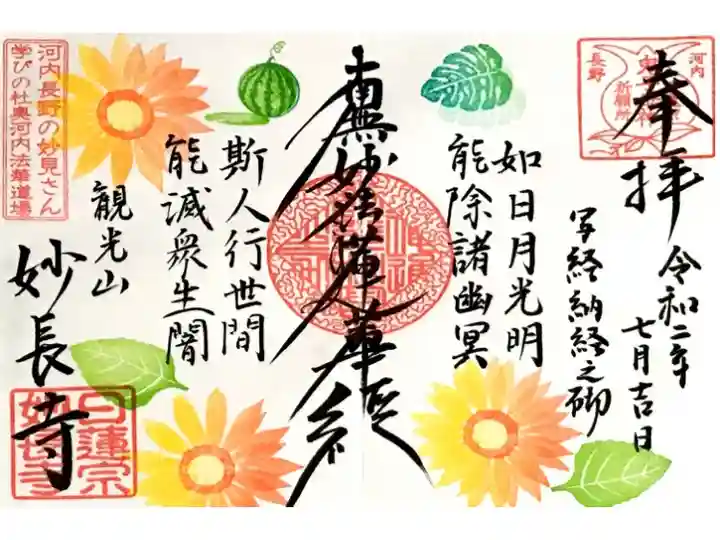 奉拝
令和二年
七月吉日
写経納経之砌
河内
長野
祈願所
如日月光明
能除諸幽冥
南無妙法蓮華経
斯人行世間
能滅衆生闇
観光山
妙長寺
河内長野の妙見さん
学びの杜奥河内法華道場
日蓮宗
妙長寺